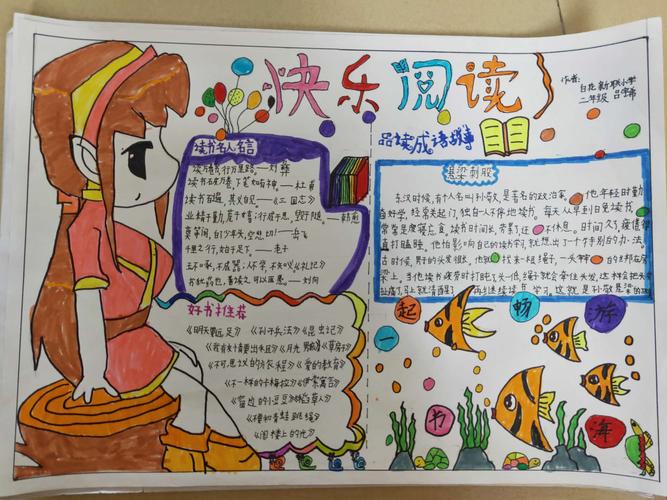 快乐阅读
作者:
白花新联小学
二年级 吕宝希
读书名人名言
读万卷书,行万里路。——刘彝
读书破万卷,下笔如有神。——杜甫
读书百遍,其义自见——《三国志》
业精于勤,荒于嬉;行成于思,毁于随。——韩愈
莫等闲,白少年头,空悲切!——岳飞
千里之行,始于足下。——老子
玉不琢,不成器;人不学,不知义《礼记》
书犹药也,善读之可以医愚。——刘向
好书推荐
《明天要远足》《孙子兵法》《昆虫记》
《我有友情要出租》《月光 《草房子》
《不可思议的旅程》《爱的教育》
《不一样的卡梅拉》《伊索寓言》
《窗边的小豆豆》《稻草人》
《狸和青蛙跳绳》
《阁楼上的光》
品读成语故事
悬梁刺股
东汉时候,有个人名叫孙敬,是著名的政治家。他年轻时勤
奋好学,经常关起门,独自一人不停地读书。每天从早到日免读书,
常常是废寝忘食。读书时间长,劳累了,还不休息。时间久了,疲倦得
直打瞌睡。他怕影响自己的读书学习,就想出了一个特别的办法。
古时候,男子的头发很长,他就找来一根绳子,一头牢牢的绑在房
梁上。当他读书疲劳时打盹了,头一低,绳子就会牵住头发,这样会把头
扯痛了,马上就清醒了 再继续读书学习。这就是孙敬悬梁的
一起畅游书海